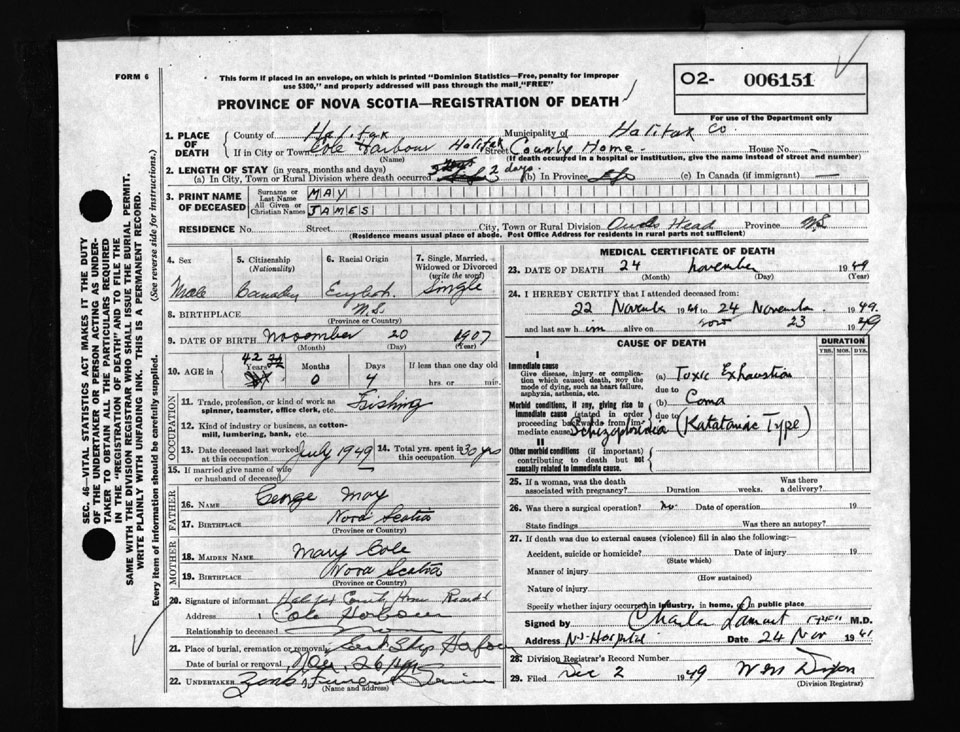 FORM 6
This form if placed in an envelope, on which is printed "Dominion Statistics—Free, penalty for improper
use $300," and properly addressed will pass through the mail "FREE"
O2- 006151
PROVINCE OF NOVA SCOTIA—REGISTRATION OF DEATH
For use of the Department only
1. PLACE OF DEATH
County of Halifax Municipality of Halifax Co.
If in City or Town Cole Harbour Halifax Street County Home. House No. —
(Name) (If death occurred in a hospital or institution, give the name instead of street and number)
2. LENGTH OF STAY (in years, months and days)
(a) In City, Town or Rural Division where death occurred 2 days. (b) In Province Life (c) In Canada (if immigrant) —
3. PRINT NAME OF DECEASED
Surname or Last Name MAY
All Given or Christian Names JAMES
RESIDENCE No. Street City, Town or Rural Division Owls Head Province N.S.
(Residence means usual place of abode. Post Office Address for residents in rural parts not sufficient)
4. Sex Male
5. Citizenship (Nationality) Canadian
6. Racial Origin English
7. Single, Married, Widowed or Divorced (write the word) Single
8. BIRTHPLACE N.S.
(Province or Country)
9. DATE OF BIRTH November 20 1907
(Month) (Day) (Year)
10. AGE in 42 Years Months 0 Days 4 If less than one day old
hrs. or min.
OCCUPATION
11. Trade, profession, or kind of work as
spinner, teamster, office clerk, etc. Fishing
12. Kind of industry or business, as cotton-
mill, lumbering, bank, etc.
13. Date deceased last worked at this occupation July 1949 14. Total yrs. spent in this occupation 30 yrs
15. If married give name of wife
or husband of deceased
FATHER
16. NAME George May
17. BIRTHPLACE Nova Scotia
(Province or Country)
MOTHER
18. MAIDEN NAME Mary Cole
19. BIRTHPLACE Nova Scotia
(Province or Country)
20. Signature of informant Halifax County Home Record
Address Cole Harbour
Relationship to deceased
21. Place of burial, cremation or removal East Ship Harbour
Date of burial or removal Nov. 26
22. UNDERTAKER Funeral Service
(Name and address)
MEDICAL CERTIFICATE OF DEATH
23. DATE OF DEATH 24 November 1949
(Month) (Day) (Year)
24. I HEREBY CERTIFY that I attended deceased from:
22 November to 24 November 1949.
and last saw him alive on Nov 23 1949
CAUSE OF DEATH DURATION
YRS. MOS. DYS.
I
Immediate cause
Give disease, injury or complica-
tion which caused death, NOT the
mode of dying, such as heart failure,
asphyxia, asthenia, etc.
(a) Toxic Exhaustion
due to
Morbid conditions, if any, giving rise to
immediate cause (stated in order
proceeding backwards from im-
mediate cause)
(b) Coma
due to
Schizophrenia (Katatonic Type)
II
Other morbid conditions (if important)
contributing to death but not
causally related to immediate cause.
25. If a woman, was the death
associated with pregnancy? Duration weeks. Was there a delivery?
26. Was there a surgical operation? No. Date of operation 19
State findings Was there an autopsy?
27. If death was due to external causes (violence) fill in also the following:—
Accident, suicide or homicide? Date of injury 19
(State which)
Manner of injury
(How sustained)
Nature of injury
Specify whether injury occurred in industry, in home, or in public place
Signed by Charles Lamont M.D.
Address N.S. Hospital Date 24 Nov
28. Division Registrar's Record Number
29. Filed Dec 2 1949
(Division Registrar)
SEC. 46—VITAL STATISTICS ACT MAKES IT THE DUTY
OF THE UNDERTAKER OR PERSON ACTING AS UNDER-
TAKER TO OBTAIN ALL THE PARTICULARS REQUIRED
IN THE "REGISTRATION OF DEATH" AND TO FILE THE
SAME WITH THE DIVISION REGISTRAR WHO SHALL ISSUE THE BURIAL PERMIT.
WRITE PLAINLY WITH UNFADING INK. THIS IS A PERMANENT RECORD.
Every item of information should be carefully supplied. (See reverse side for instructions.)